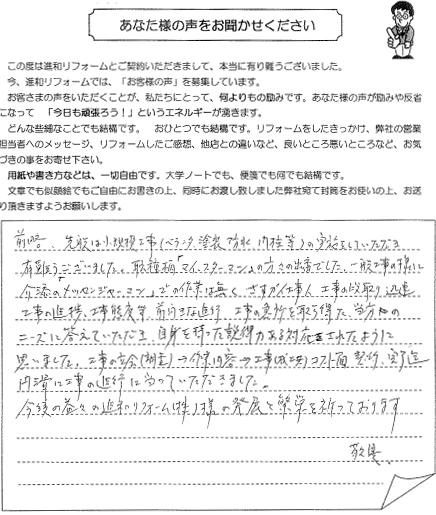 あなた様の声をお聞かせください
この度は進和リフォームとご契約いただきまして、本当に有り難うございました。
今、進和リフォームでは、「お客様の声」を募集しています。
お客さまの声をいただくことが、私たちにとって、何よりもの励みです。あなた様の声が励みや反省
になって 「今日も頑張ろう！」というエネルギーが湧きます。
どんな些細なことでも結構です。 おひとつでも結構です。リフォームをしたきっかけ、弊社の営業
担当者へのメッセージ、リフォームしたご感想、他店との違いなど、良いところ悪いところなど、お気
づきの事をお寄せ下さい。
用紙や書き方などは、一切自由です。大学ノートでも、便箋でも何でも結構です。
文章でも似顔絵でもご自由にお書きの上、同時にお渡し致しました弊社宛て封筒をお使いの上、お送
り頂きますようお願いします。
前略、先般は小規模工事(ベランダ、塗装、防水、門柱等)の実施をしていただき
有難うございました。職種柄「マイスターマン」の方々の出番でした。一般工事の様に
「メッセンジャーマン」での作業は無く さすが仕事人 工事の段取り、迅速
工事の進捗、工事態度等、前向きな進行、工事の
ニーズに答えていただき、自身を持った説得力ある対応をされたように
思いました。工事の
円滑に工事の進行に当っていただきました。
今後の益々の進和リフォーム(株)様の発展と繁栄を祈っております
敬具